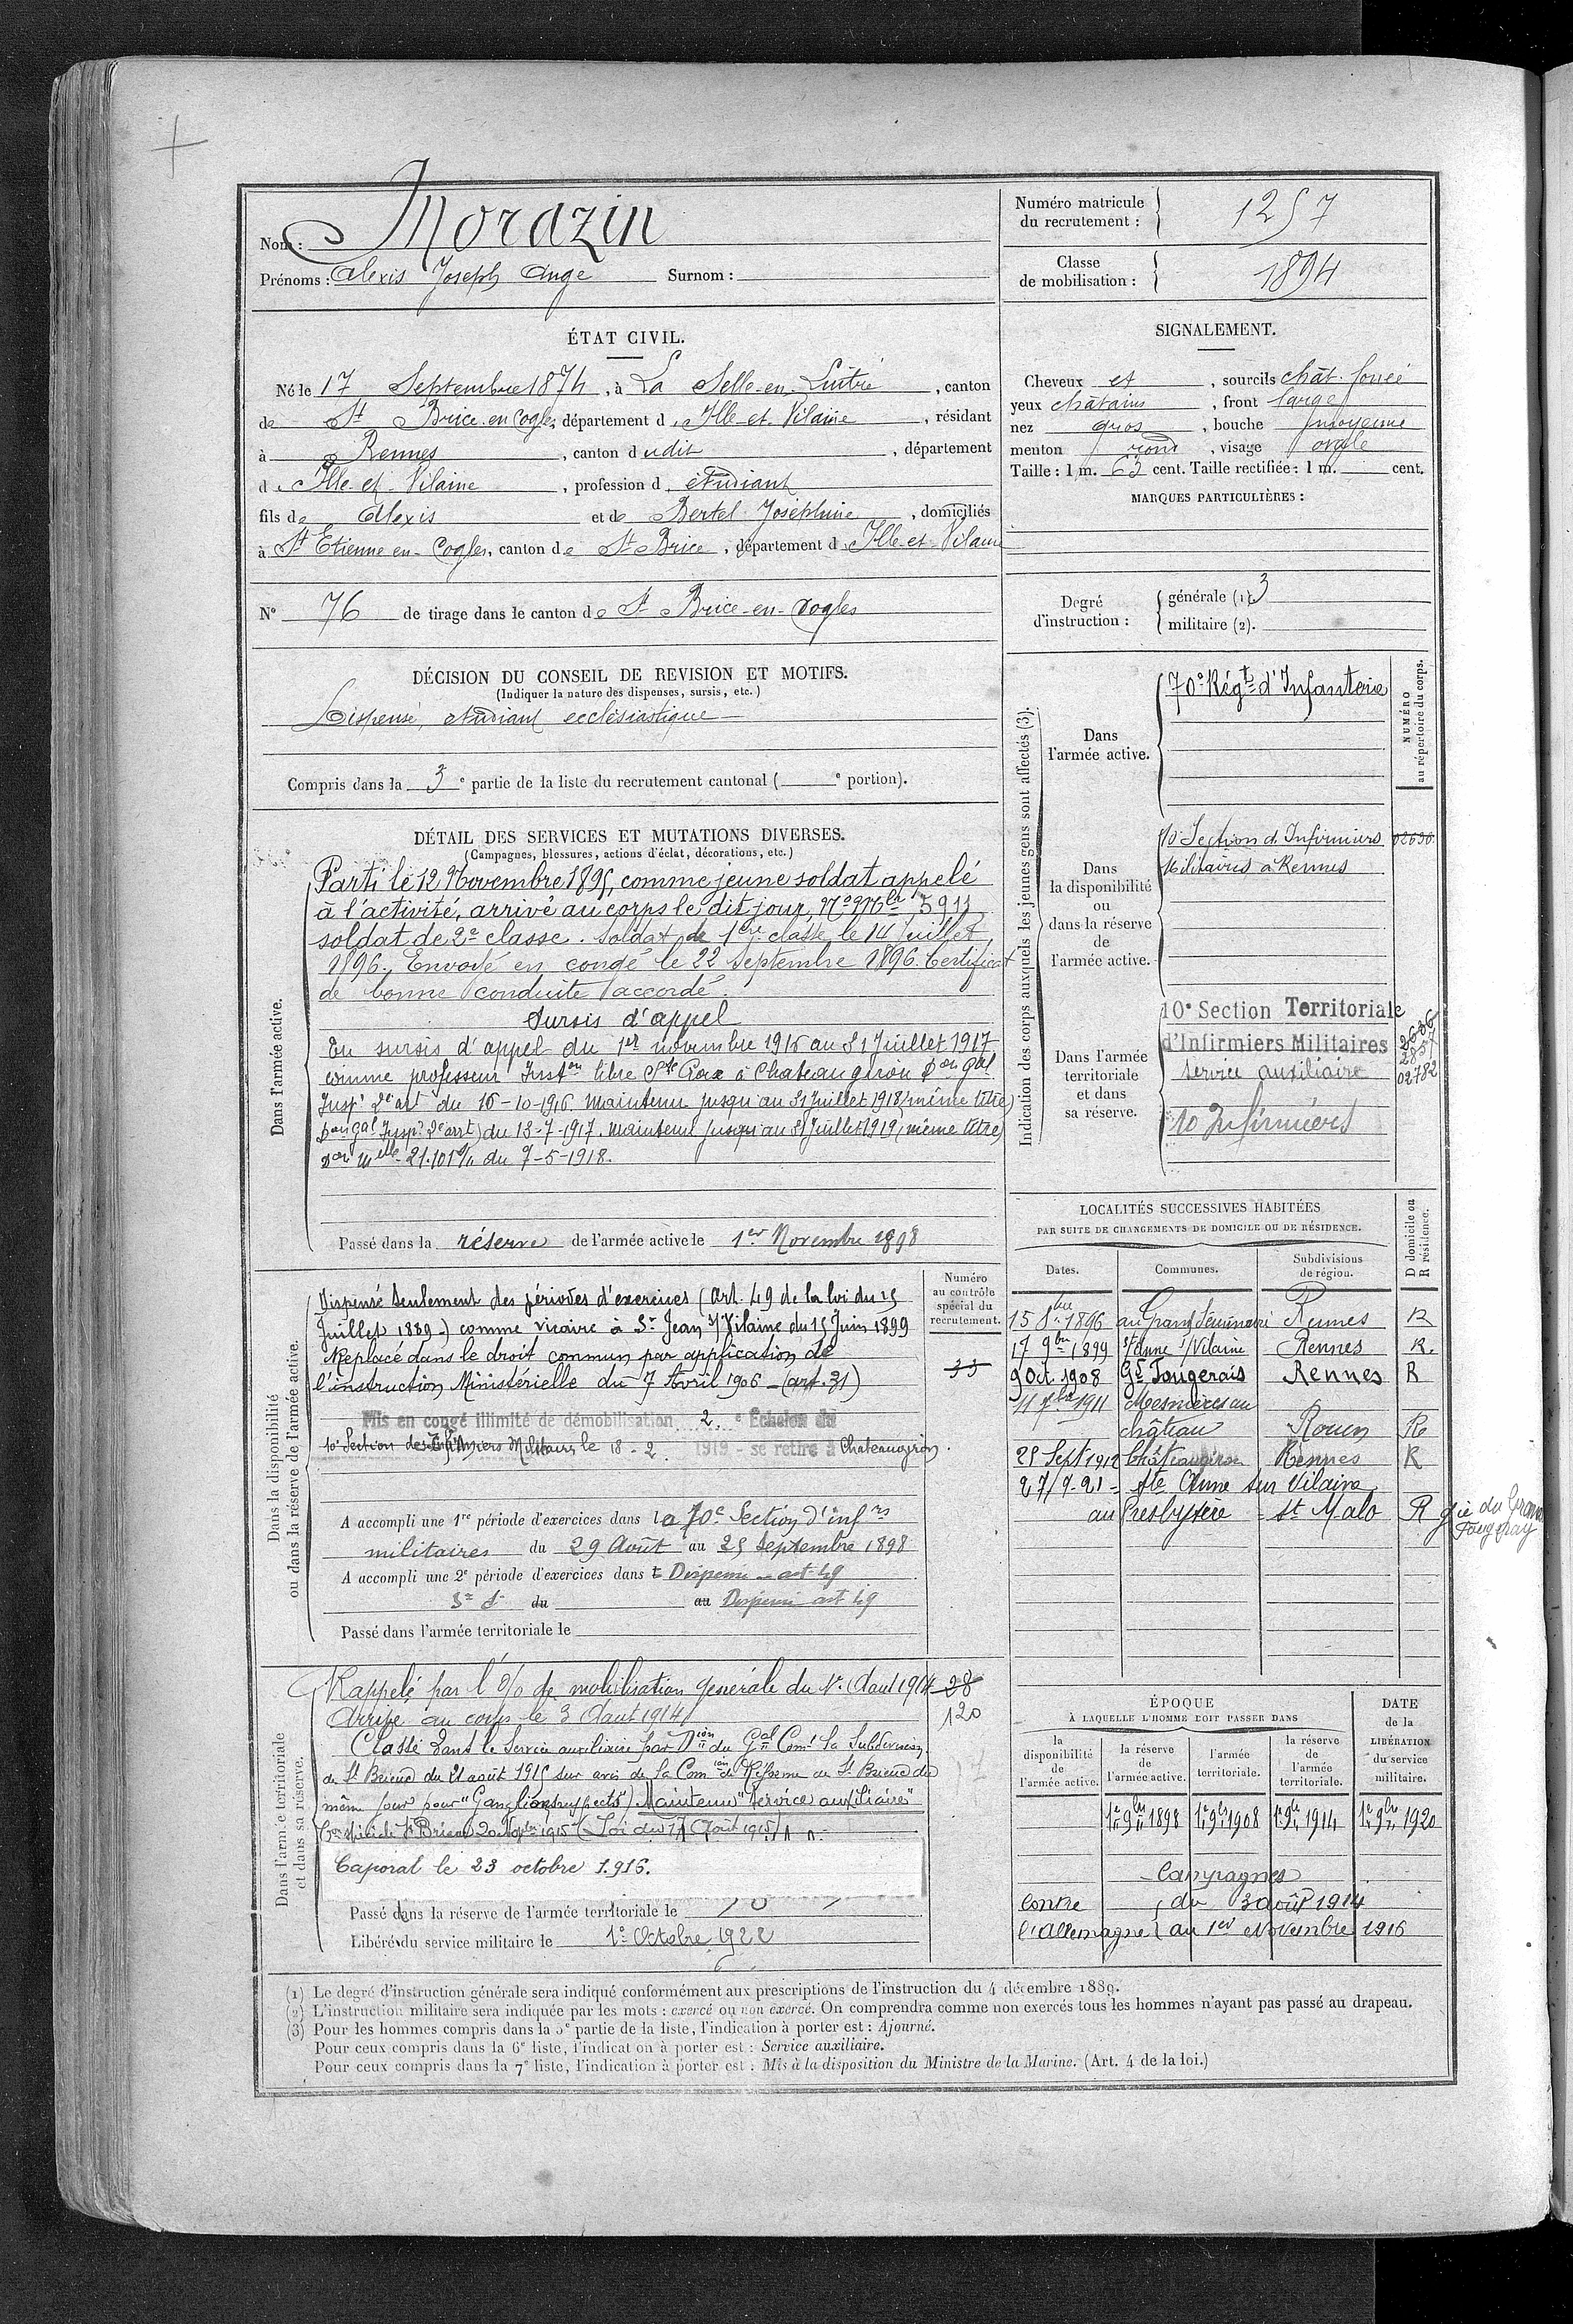 Nom : Morazin
Prénoms : Alexis Joseph Ange Surnom :
Numéro matricule du recrutement : 1257
Classe de mobilisation : 1894
ÉTAT CIVIL.
Né le 17 Septembre 1874, à La Selle-en-Luitré, canton
de St Brice-en-Cogles, département d'Ille-et-Vilaine, résidant
à Rennes, canton dudit, département
d'Ille-et-Vilaine, profession d'étudiant
fils de Alexis et de Bertel Joséphine, domiciliés
à St Etienne-en-Cogles, canton de St Brice, département d'Ille-et-Vilaine
N° 76 de tirage dans le canton de St Brice-en-Cogles
DÉCISION DU CONSEIL DE REVISION ET MOTIFS.
(Indiquer la nature des dispenses, sursis, etc.)
Dispensé, étudiant ecclésiastique
Compris dans la 3e partie de la liste du recrutement cantonal ( e portion).
SIGNALEMENT.
Cheveux et, sourcils chât. foncé
yeux châtains, front large
nez gros, bouche moyenne
menton rond, visage ovale
Taille : 1 m. 62 cent. Taille rectifiée : 1 m. cent.
MARQUES PARTICULIÈRES :
Degré d'instruction :
générale (1). 3
militaire (2).
DÉTAIL DES SERVICES ET MUTATIONS DIVERSES.
(Campagnes, blessures, actions d'éclat, décorations, etc.)
Dans l'armée active.
Parti le 12 Novembre 1895, comme jeune soldat appelé
à l'activité, arrivé au corps le dit jour, No Mle 5913
soldat de 2e classe. Soldat de 1re classe le 14 Juillet
1896. Envoyé en congé le 22 Septembre 1896. Certificat
de bonne conduite accordé.
Sursis d'appel
En sursis d'appel du 1er novembre 1916 au 31 Juillet 1917
comme professeur Inston libre Ste Croix à Chateaugiron Don Gal
Insp. 2e arrt du 16-10-1916. Maintenu jusqu'au 31 Juillet 1918 (même titre)
Don Gal Insp. 2e arrt) du 13-7-1917. Maintenu jusqu'au 31 Juillet 1919 (même titre)
Don Melle 21.101 du 7-5-1918.
Passé dans la réserve de l'armée active le 1er Novembre 1898
Indication des corps auxquels les jeunes gens sont affectés (3).
NUMÉRO au répertoire du corps.
Dans l'armée active.
70e Régt d'Infanterie
Dans la disponibilité ou dans la réserve de l'armée active.
10e Section d'Infirmiers 02630
Militaires à Rennes
Dans l'armée territoriale et dans sa réserve.
10e Section Territoriale
d'Infirmiers Militaires
service auxiliaire 02782
10 Infirmiers
Dans la disponibilité ou dans la réserve de l'armée active.
Numéro au contrôle spécial du recrutement.
Dispensé seulement des périodes d'exercices (Art. 49 de la loi du 15
Juillet 1889.) comme vicaire à St Jean s/ Vilaine du 15 Juin 1899
Replacé dans le droit commun par application de
l'instruction Ministérielle du 7 Avril 1906 - (art. 31)
33
Mis en congé illimité de démobilisation 2. e Échelon du
10e Section des Infirmiers Militaires le 18-2. 1919 - se retire à Chateaugiron.
A accompli une 1re période d'exercices dans la 10e Section d'infrs
militaires du 29 Août au 25 Septembre 1898
A accompli une 2e période d'exercices dans Dispensé - art 49
3e du au Dispensé art 49
Passé dans l'armée territoriale le
LOCALITÉS SUCCESSIVES HABITÉES
PAR SUITE DE CHANGEMENTS DE DOMICILE OU DE RÉSIDENCE.
Dates. Communes. Subdivisions de région. D domicile ou R résidence.
15 8bre 1896 au Grand Séminaire Rennes R
17 9bre 1899 Ste Anne s/ Vilaine Rennes R.
9 Oct. 1908 Gd Fougerais Rennes R
11 7bre 1911 Mesnières au
château Rouen R
25 Sept 1912 Châteaugiron Rennes R
27/9-21 - Ste Anne sur Vilaine
au Presbytère - St Malo R gie du Grand
Fougeray
Dans l'armée territoriale et dans sa réserve.
Rappelé par l'O/ de mobilisation générale du 1er Août 1914 28
Arrivé au corps le 3 Août 1914. 120
Classé dans le Service auxiliaire par Dion du Gal Comt la Subdivision
de St Brieuc du 21 août 1915 sur avis de la Comion de Réforme de St Brieuc du
même jour pour "Ganglions suspects") Maintenu "service auxiliaire"
Con spéciale St Brieuc 20 Nov. 1915 (Loi du 17 Août 1915)
Caporal le 23 octobre 1.916.
Passé dans la réserve de l'armée territoriale le
Libéré du service militaire le 1er Octobre 1922
ÉPOQUE
À LAQUELLE L'HOMME DOIT PASSER DANS
la disponibilité de l'armée active. la réserve de l'armée active. l'armée territoriale. la réserve de l'armée territoriale.
DATE de la LIBÉRATION du service militaire.
1er 9bre 1898 1er 9bre 1908 1er 9bre 1914 1er 9bre 1920
Campagnes
Contre du 3 août 1914
l'Allemagne au 1er Novembre 1916
(1) Le degré d'instruction générale sera indiqué conformément aux prescriptions de l'instruction du 4 décembre 1889.
(2) L'instruction militaire sera indiquée par les mots : exercé ou non exercé. On comprendra comme non exercés tous les hommes n'ayant pas passé au drapeau.
(3) Pour les hommes compris dans la 5e partie de la liste, l'indication à porter est : Ajourné.
Pour ceux compris dans la 6e liste, l'indication à porter est : Service auxiliaire.
Pour ceux compris dans la 7e liste, l'indication à porter est : Mis à la disposition du Ministre de la Marine. (Art. 4 de la loi.)